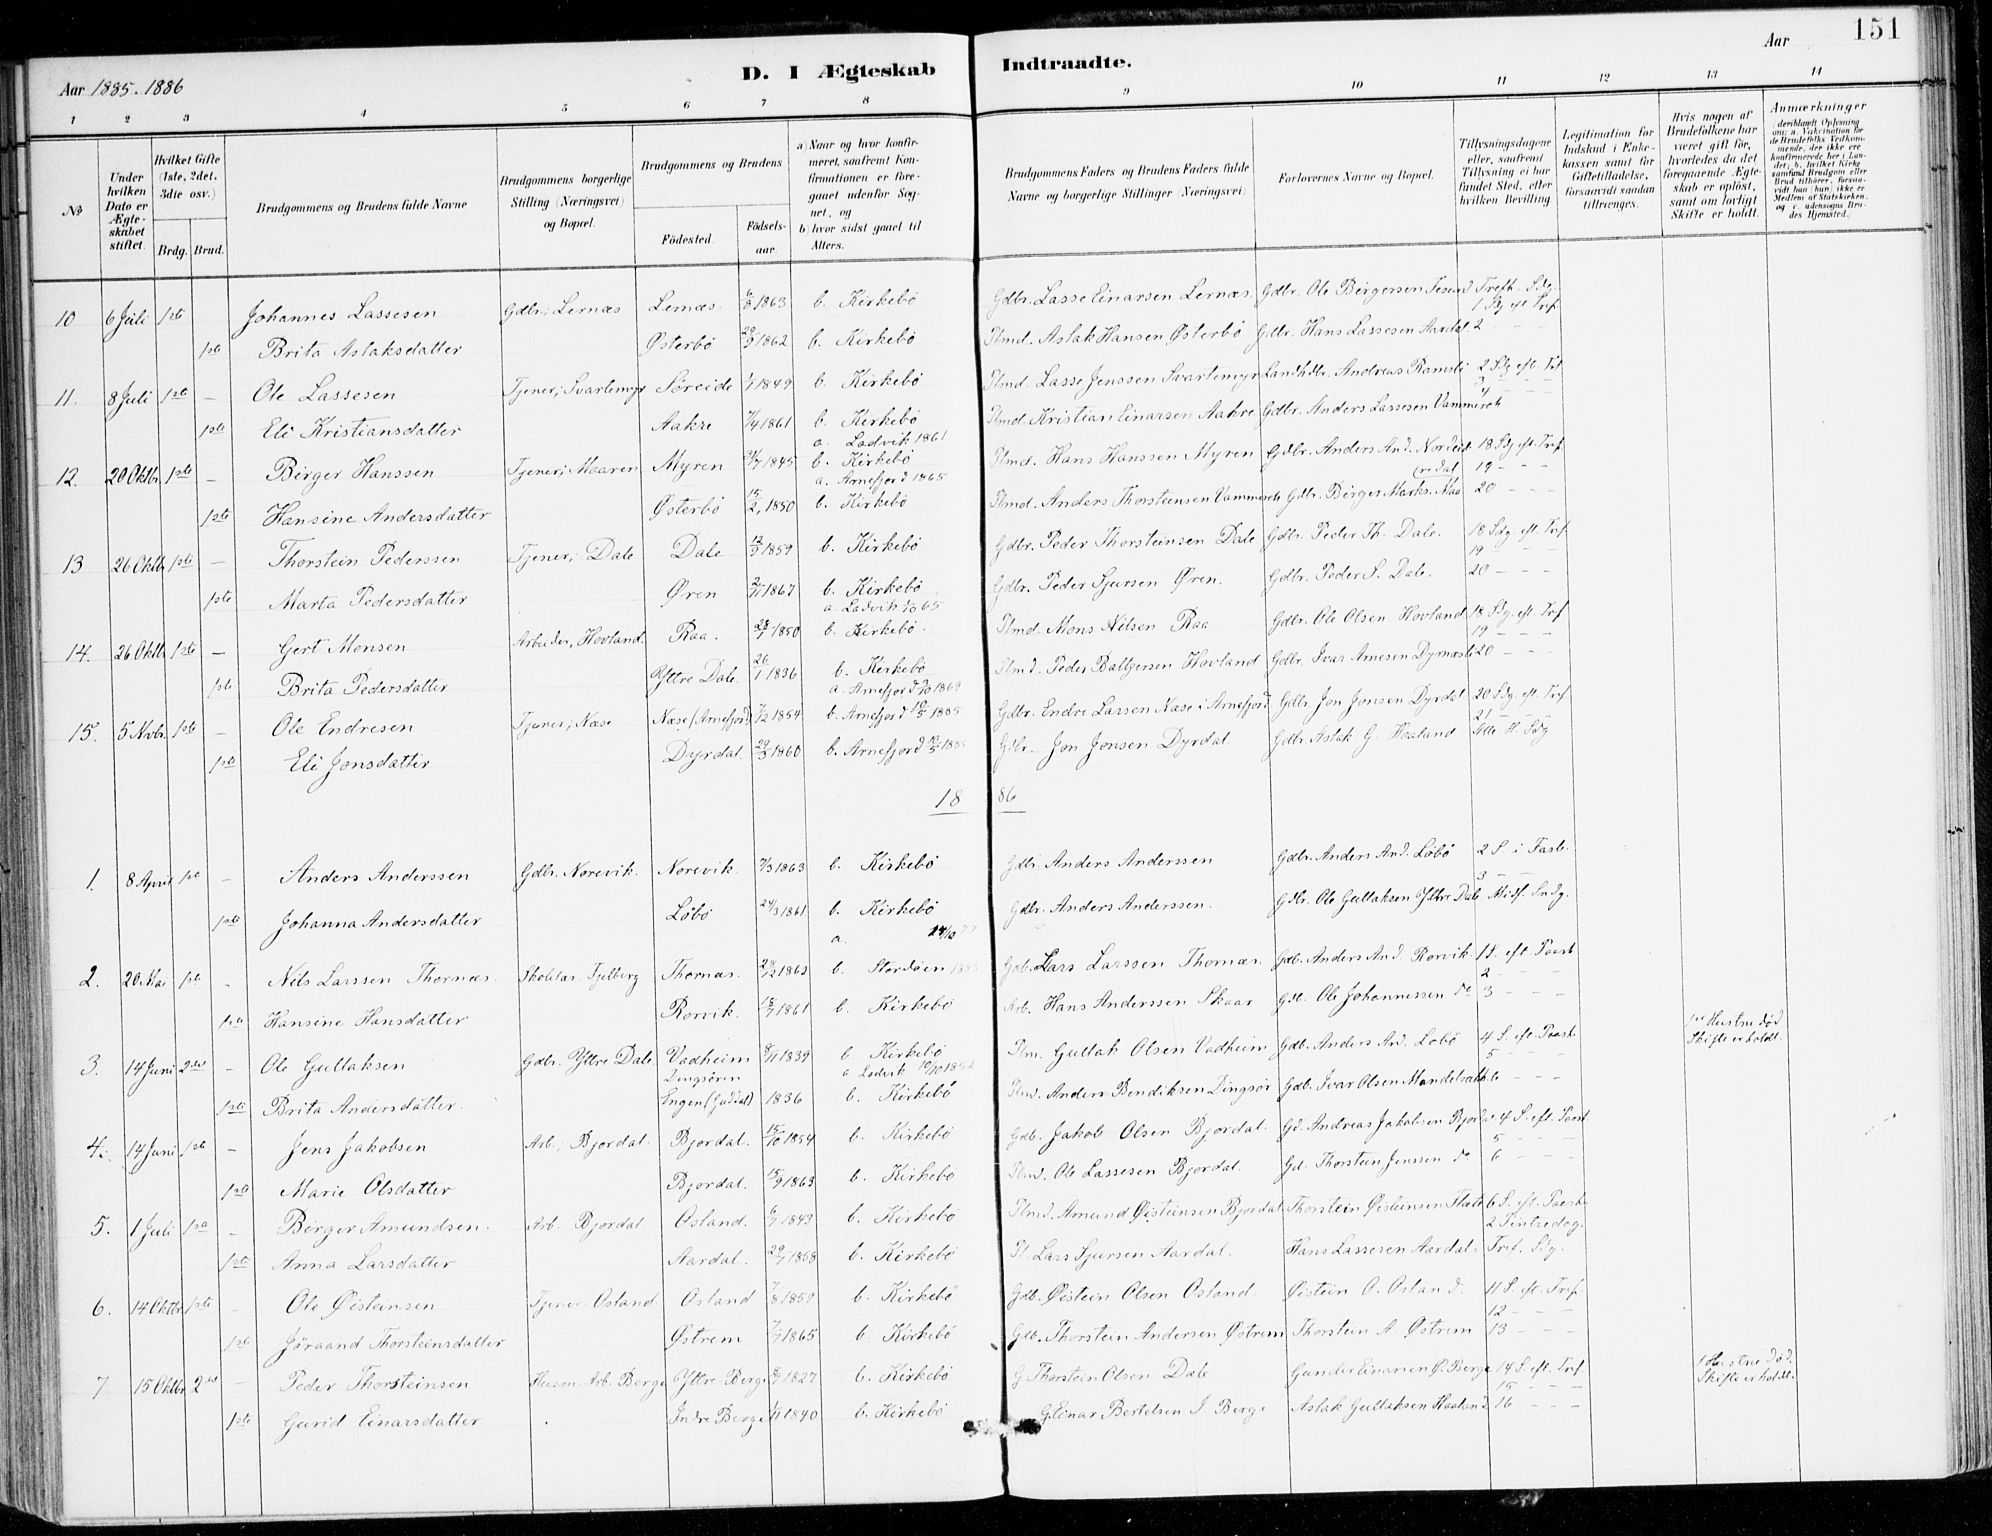 151
Aar 1885. 1886
D. I Ægteskab Indtraadte.
Aar
1 2 3 4 5 6 7 8 9 10 11 12 13 14
No
Under hvilken Dato er Ægteskabet stiftet.
Hvilket Gifte (1ste, 2det, 3die osv.)
Brdg. Brud.
Brudgommens og Brudens fulde Navne
Brudgommens borgerlige Stilling (Næringsvei) og Bopæl.
Brudgommens og Brudens
Fødested. Fødselsaar.
a) Naar og hvor konfirmeret, saafremt Konfirmationen er foregaaet udenfor Sognet, og b) hvor sidst gaaet til Alters.
Brudgommens Faders og Brudens Faders fulde Navne og borgerlige Stillinger (Næringsvei).
Forlovernes Navne og Bopæl.
Tillysningsdagene eller, saafremt Tillysning ei har fundet Sted, efter hvilken Bevilling.
Legitimation for Indskud i Enkekassen samt for Giftetilladelse, forsaavidt saadan tiltrænges.
Hvis nogen af Brudefolkene har været gift før, hvorledes da det foregaaende Ægteskab er opløst, samt om lovligt Skifte er holdt.
Anmærkninger (deriblandt Oplysning om: a. Vakcination for de Brudefolks Vedkommende, der ikke ere konfirmerede her i Landet; b. hvilket Kirkesamfund Brudgom eller Brud tilhører, forsaavidt han (hun) ikke er Medlem af Statskirken, og c. udensogns Brudes Hjemsted.)
10 6 Juli 1ste Johannes Lassesen Gdbr. i Lernæs Lernæs 6/8 1863 b. Kirkebø Gdbr. Lasse Einarsen Lernæs. Gdbr. Ole Børgersen Trefh. Sdg. 1 Sdg eft Tref
1ste Brita Aslaksdatter Østerbø 29/9 1862 b. Kirkebø Plmd. Aslak Hansen Østerbø Gdbr. Hans Lassesen Aardal 2 - - -
11. 8 Juli 1ste - Ole Lassesen Tjener i Svartemyr Søreide 1849 b. Kirkebø Plmd. Lasse Jenssen Svartemyr Landhdlr. Andreas 2 Sdg eft. Tref 3
1ste Eli Kristiansdatter Aakre 1861 b. Kirkebø Plmd. Kristian Einarsen Aakre Gdbr. Anders Lassesen 4 - - -
12. 20 Oktbr. 1ste - Børger Hanssen Tjener i Maaren Myren 1845 a. Ladvik 1861 b. Kirkebø Plmd. Hans Hanssen Myren Gdbr. Anders And. 18 Sdg eft. Tref. 19 - - -
1ste Hansine Andersdatter Østerbø 15/2 1850 a. Arnefjord 1865 b. Kirkebø Plmd. Anders Thorsteinsen Gdbr. Børger Marks. 20 - - -
13 26 Oktbr 1ste - Thorstein Pederssen Tjener i Dale Dale 12/9 1859 b. Kirkebø Gdbr. Peder Thorsteinsen Dale Gdbr. Peder Th. Dale. 18 Sdg. eft. Tref. 19
1ste Marta Pedersdatter Øren 1867 b. Kirkebø Gdbr. Peder Sjursen Øren. Gdbr. Peder S. Dale. 20 - - -
14. 26 Oktbr 1ste - Gert Monsen Arbeider, Hovland. Raa. 28/1 1850 a. Ladvik 65 b. Kirkebø. Plmd. Mons Nilsen Raa Gdbr. Ole Olsen Hovland 18 Sdg. eft. Tref 19 - - -
1ste Brita Pedersdatter Yttre Dale. 26/1 1836 b. Kirkebø Plmd. Peder Hovland Gdbr. Ivar 20 - - -
15. 5 Novbr. 1ste - Ole Endresen Tjener i Næse Næse (Arnefjord) 1854 a. Arnefjord 1869 b. Arnefjord 1885 Gdbr. Endre Larsen Næse i Arnefjord Gdbr. Jon Jonsen Dyrdal 20 Sdg. eft. Tref 21 - - -
1ste Eli Jonsdatter Dyrdal. 29/3 1860 b. Arnefjord 1885 Gdbr. Jon Jonsen Dyrdal Gdbr. Aslak G. Haaland Alle H. Sdg
18 86
1. 8 April 1ste - Anders Anderssen Gdbr. Norevik Norevik. 1863 b. Kirkebø Gdbr. Anders Anderssen Gdbr. Anders And. Løbø 2 S i Faste. 3 - -
1ste Johanna Andersdatter Løbø 24/3 1861 b. Kirkebø Gdbr. Anders Anderssen. Gdbr. Ole Gullaksen Yttre Dale Midf. Sndg.
2. 20 Mai 1ste - Nils Larssen Thornæs. Tjelberg Thornæs. 28/12 1862 a. b. Gdb. Lars Larssen Thornæs Gdb. Anders And. Rorvik. 1 S. eft. Paask 2 - - -
1ste Hansine Hansdatter Rorvik. 18/7 1861 b. Kirkebø Arb. Hans Anderssen Skaar Gdb. Ole Johannessen do 3 - - -
3. 14 Juni 2det - Ole Gullaksen Gdbr. Yttre Dale. Vadheim 8/11 1839 b. Kirkebø Plm. Gullak Olsen Vadheim Gdb. Anders And. Løbø 4 S. eft. Paask 5 - - - 1ste Hustru død Skifte er holdt.
1ste Brita Andersdatter. Engen (Guldal) 1836 b. Kirkebø Plmd. Anders Bendiksen Gdb. Ivar Olsen 6 - - -
4. 14 Juni 1ste - Jens Jakobsen Arb., Bjordal. Bjordal. 15/10 1854 b. Kirkebø Gdb. Jakob Olsen Bjordal. Gd. Andreas Jakobsen Bjordal 4 S. eft. Paask 5 - - -
1ste Marie Olsdatter Bjordal. 15/9 1863 b. Kirkebø Plmd. Ole Lassesen Bjordal. Gd. Thorstein Jenssen do 6 - - -
5. 1 Juli 1ste - Børger Amundsen. Arb. Bjordal Osland. 6/7 1843 b. Kirkebø Plmd. Amund Øisteinsen Bjordal Thorstein Øisteinsen Flate 6 S. eft. Paask. 2 Pintsedag.
1ste Anna Larsdatter Aardal. 29/7 1858 b. Kirkebø Pl. Lars Sjursen Aardal. Hans Lassesen Aardal. Tref. Sdg.
6. 14 Oktbr. 1ste - Ole Øisteinsen Tjener Osland Osland 7/8 1859 b. Kirkebø Gdb. Øistein Olsen Osland. Øistein O. Osland. 11 S. eft. Tref. 12 - - -
1ste Jøraand Thorsteinsdatter Østrem 7/7 1865 b. Kirkebø Gdb. Thorstein Andersen Østrem Thorstein A. Østrem 13 - - -
7. 15 Oktbr 2det - Peder Thorsteinsen Husm. Arb. Berge Yttre Berge 1827 b. Kirkebø G. Thorstein Olsen Dale Gunder Einarsen Ø. Berge 14 S. eft. Tref. 15 - - - 1 Hustru død. Skifte er holdt.
1ste Gurid Einarsdatter Indre Berge 1840 b. Kirkebø G. Einar Bertelsen I. Berge Aslak Gullaksen Haaland 16 - - -